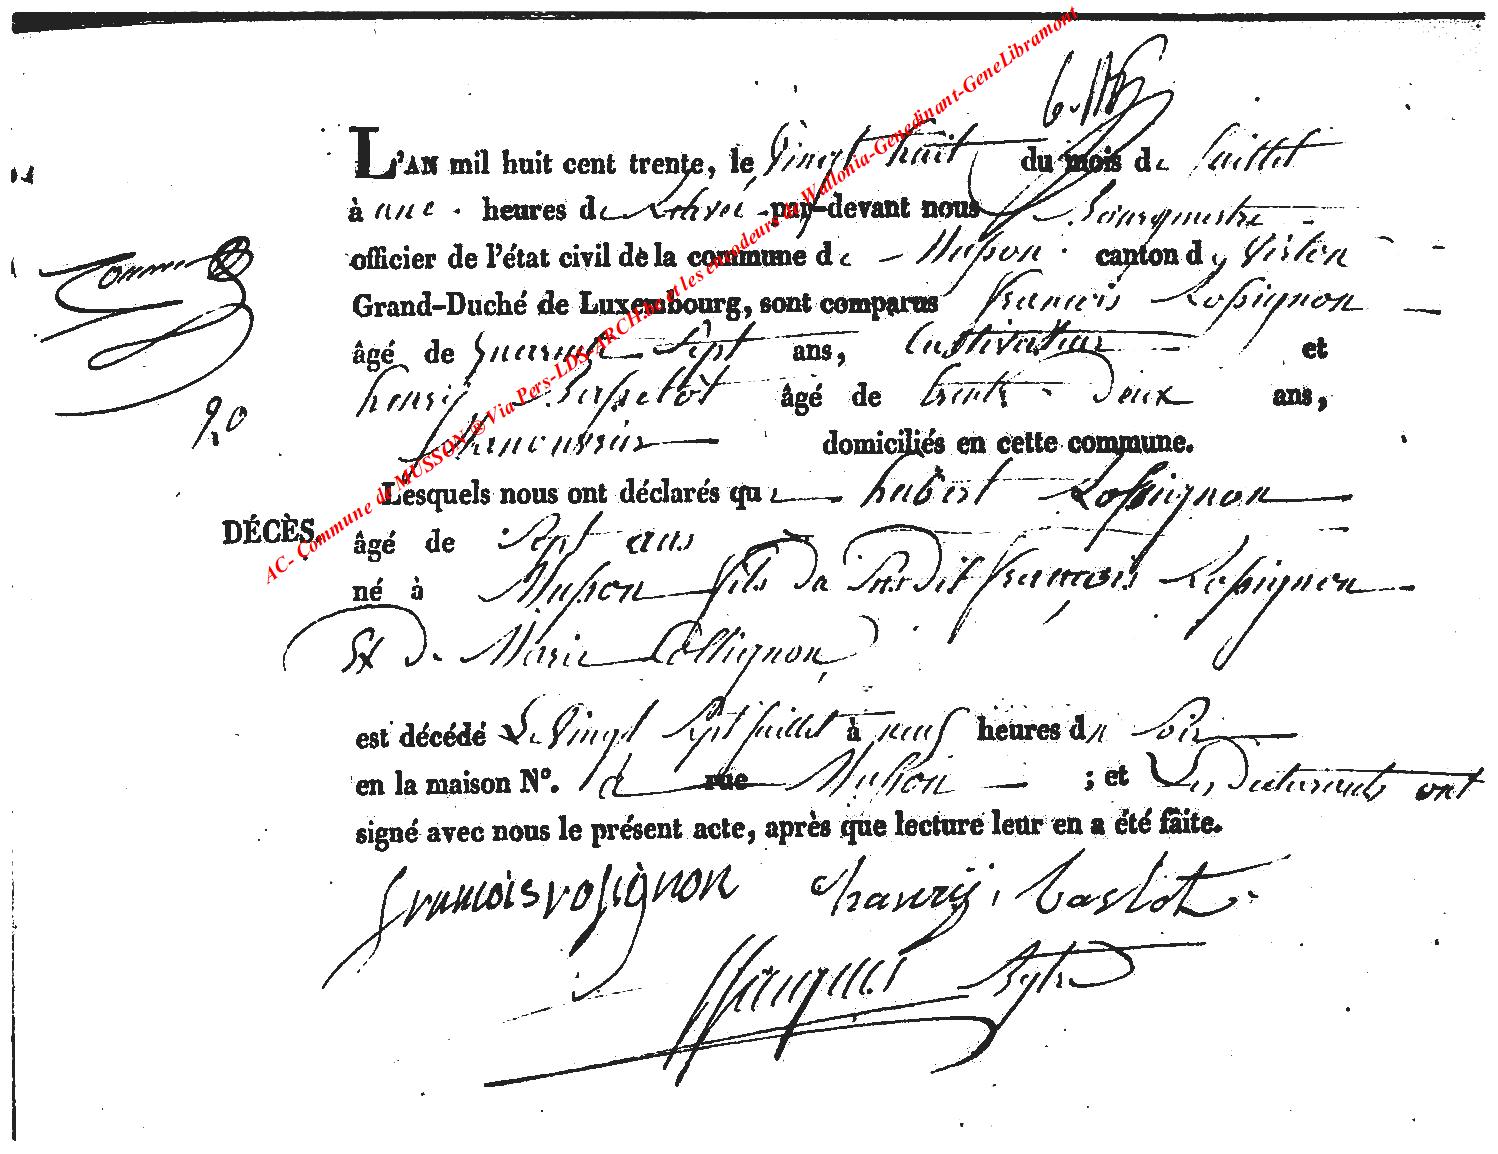 L'AN mil huit cent trente, le Vingt huit du mois de Juillet
à une heures de Relevée par-devant nous Bourgmestre
officier de l'état civil de la commune de Musson canton de Virton
Grand-Duché de Luxembourg, sont comparus françois Rossignon
âgé de quarante Sept ans, Cultivateur et
henry âgé de trente Deux ans,
domiciliés en cette commune.
Lesquels nous ont déclarés que hubert Rossignon
DÉCÈS.
âgé de Sept ans
né à Musson fils du Susdit françois Rossignon
Et De Marie Collignon
est décédé Le Vingt Sept Juillet à neuf heures du Soir
en la maison N°. d rue Musson ; et Les Déclarants ont
signé avec nous le présent acte, après que lecture leur en a été faite.
francois rosignon hanrij
Jacques
AC- Commune de MUSSON @Via Pers-LDS-ARCH.be et les encodeurs de Wallonia-Genedinant-GeneLibramont